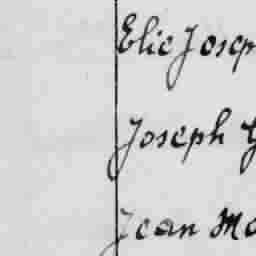 Elie Josep
Joseph G
Jean Ma